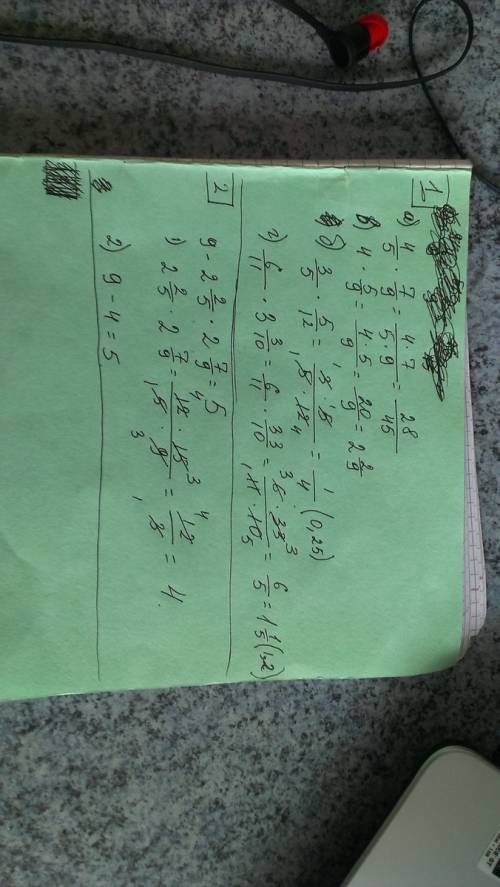 1
а) 4/5 · 7/9 = 4·7/5·9 = 28/45
в) 4 · 5/9 = 4·5/9 = 20/9 = 2 2/9
б) 3/5 · 5/12 = 3·5/5·12 = 1/4 (0,25)
г) 6/11 · 3 3/10 = 6/11 · 33/10 = 6·33/11·10 = 6/5 = 1 1/5 (1,2)
2
9 - 2 2/5 · 2 7/9 = 5
1) 2 2/5 · 2 7/9 = 12·15/5·9 = 12/3 = 4.
2) 9 - 4 = 5